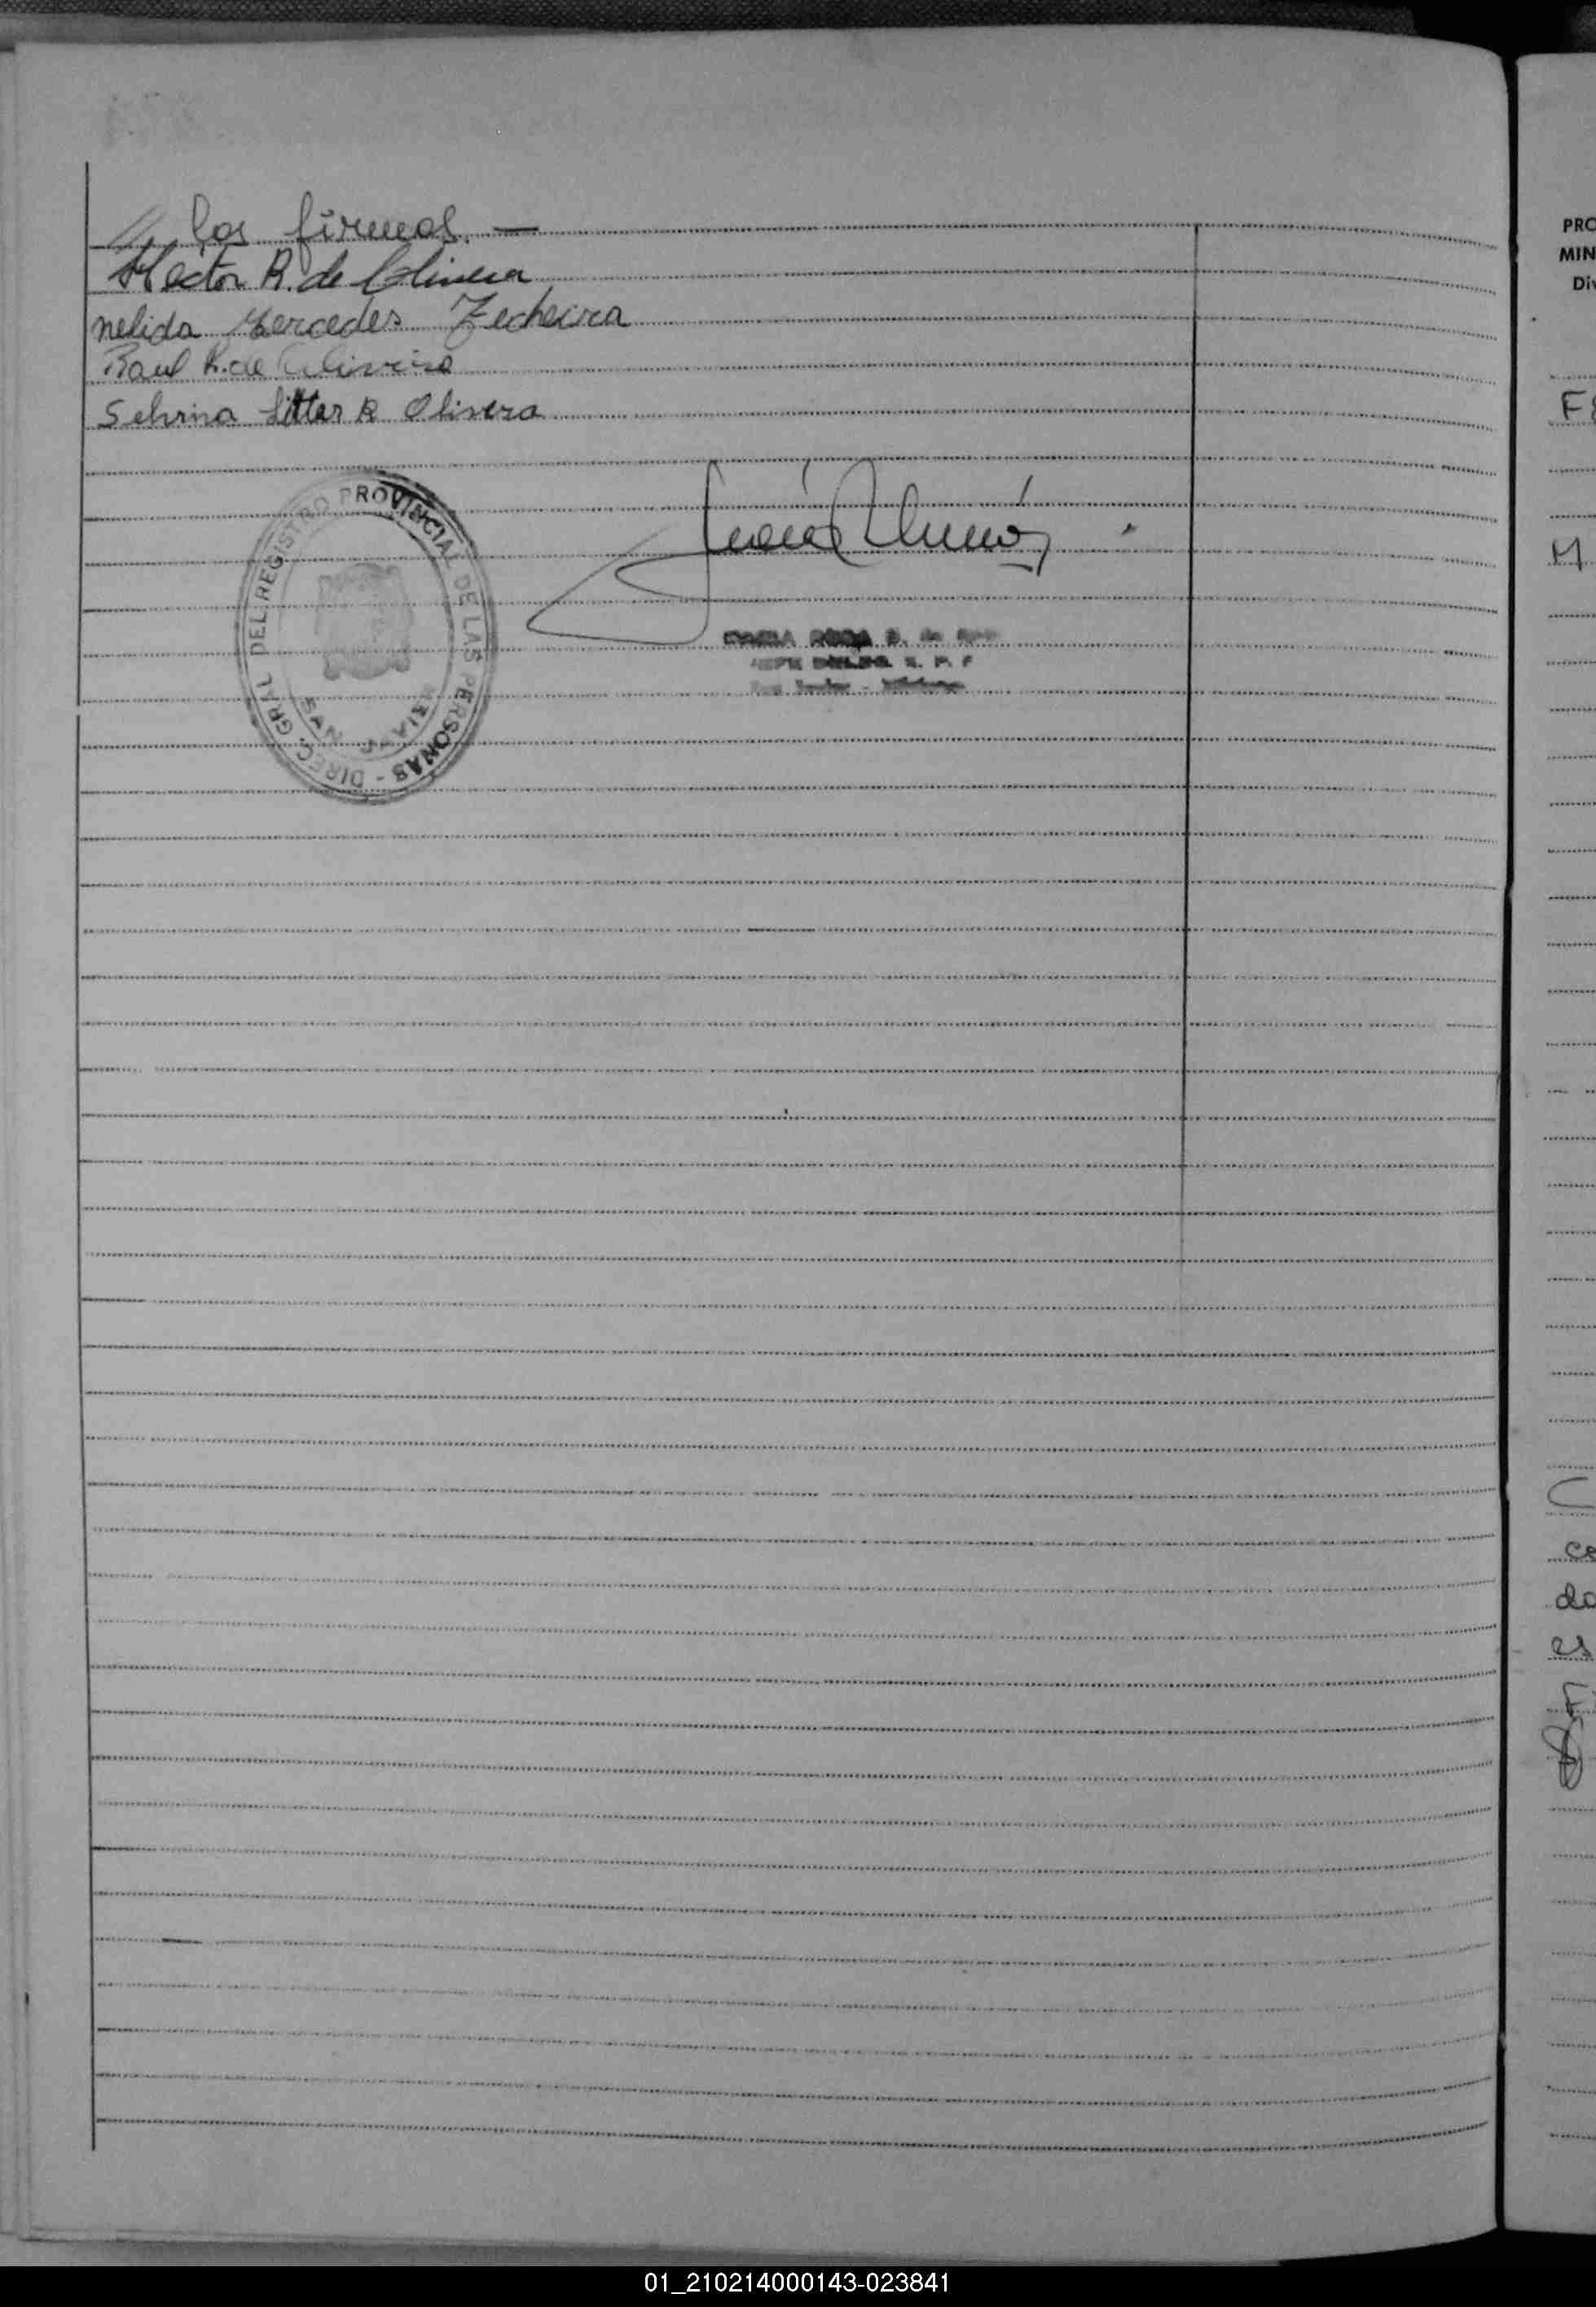 // las firmas. —
Hector R. de Olivera
nelida Mercedes Zecheira
Raul R. de Olivera
Selvina Litter R Olivera
DIREC. GRAL. DEL REGISTRO PROVINCIAL DE LAS PERSONAS -
SAN
PRO
MIN
Div
M
C
ce
do
es
F
01_210214000143-023841